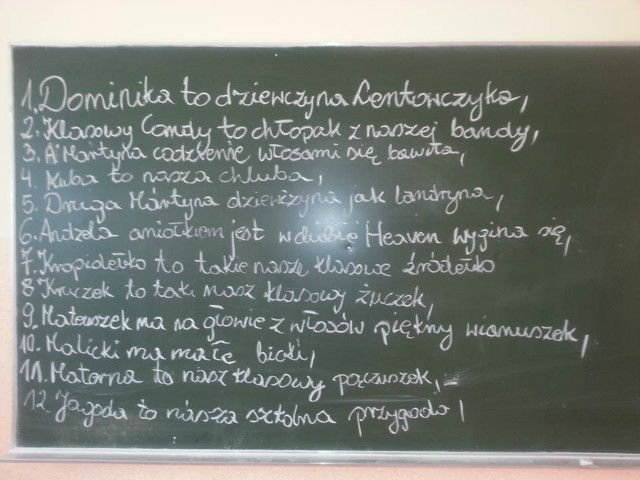 1. Dominika to dziewczyna Lentowczyka,
2. Klasowy Candy to chłopak z naszej bandy,
3. A Martyna codziennie włosami się bawiła,
4. Kuba to nasza chluba,
5. Druga Martyna dziewczyna jak landryna,
6. Andżela aniołkiem jest w clubie Heaven wygina się,
7. Kropidełko to takie nasze klasowe źródełko
8 Kruczek to taki nasz klasowy żuczek,
9. Mateuszek ma na głowie z włosów piękny wianuszek,
10. Malicki ma małe bicki,
11. Matorna to nasz klasowy pączuszek,
12. Jagoda to nasza szkolna przygoda,